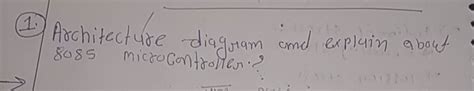 1. Architecture diagram and explain about
8085 microcontroller.?